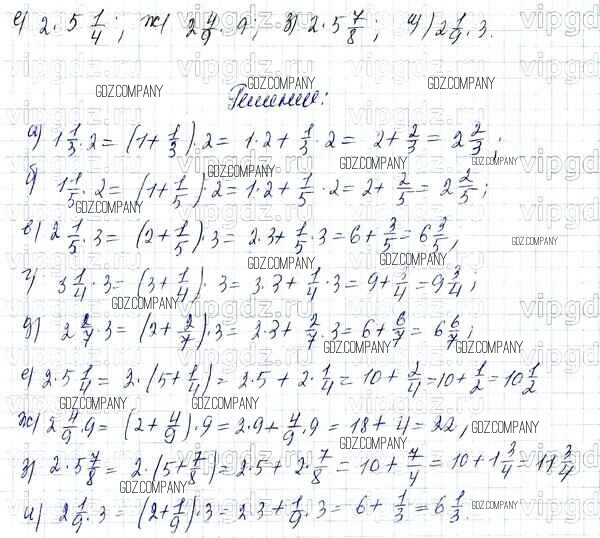 е) 2 · 5 1/4; ж) 2 4/9 · 9; з) 2 · 5 7/8; и) 2 1/9 · 3.
Решение:
а) 1 1/3 · 2 = (1 + 1/3) · 2 = 1 · 2 + 1/3 · 2 = 2 + 2/3 = 2 2/3;
б) 1 1/5 · 2 = (1 + 1/5) · 2 = 1 · 2 + 1/5 · 2 = 2 + 2/5 = 2 2/5;
в) 2 1/5 · 3 = (2 + 1/5) · 3 = 2 · 3 + 1/5 · 3 = 6 + 3/5 = 6 3/5;
г) 3 1/4 · 3 = (3 + 1/4) · 3 = 3 · 3 + 1/4 · 3 = 9 + 3/4 = 9 3/4;
д) 2 2/7 · 3 = (2 + 2/7) · 3 = 2 · 3 + 2/7 · 3 = 6 + 6/7 = 6 6/7;
е) 2 · 5 1/4 = 2 · (5 + 1/4) = 2 · 5 + 2 · 1/4 = 10 + 2/4 = 10 + 1/2 = 10 1/2
ж) 2 4/9 · 9 = (2 + 4/9) · 9 = 2 · 9 + 4/9 · 9 = 18 + 4 = 22,
з) 2 · 5 7/8 = 2 · (5 + 7/8) = 2 · 5 + 2 · 7/8 = 10 + 7/4 = 10 + 1 3/4 = 11 3/4
и) 2 1/9 · 3 = (2 + 1/9) · 3 = 2 · 3 + 1/9 · 3 = 6 + 1/3 = 6 1/3.
GDZ.COMPANY
vipgdz.ru